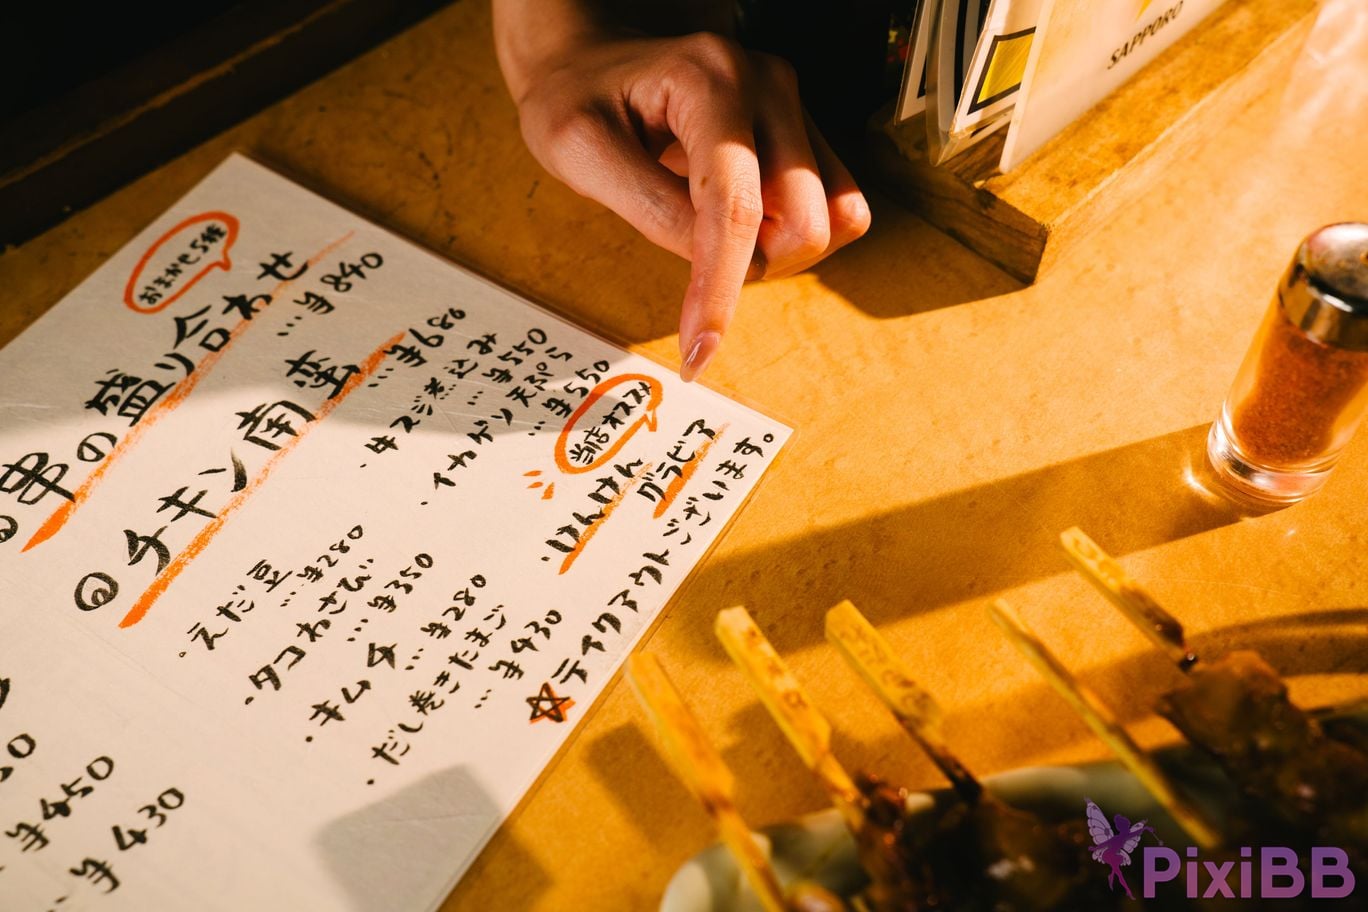 おまかせ5種
串の盛り合わせ
…¥840
◎チキン南蛮
…¥680
・牛スジ煮込み
…¥550
・イカゲソ天ぷら
…¥550
当店オススメ
・けんけん
グラビア
・えだ豆
…¥280
・タコわさび
…¥350
・キムチ
…¥280
・だし巻きたまご
…¥430
☆テイクアウトございます。
¥450
¥430
SAPPORO
PixiBB